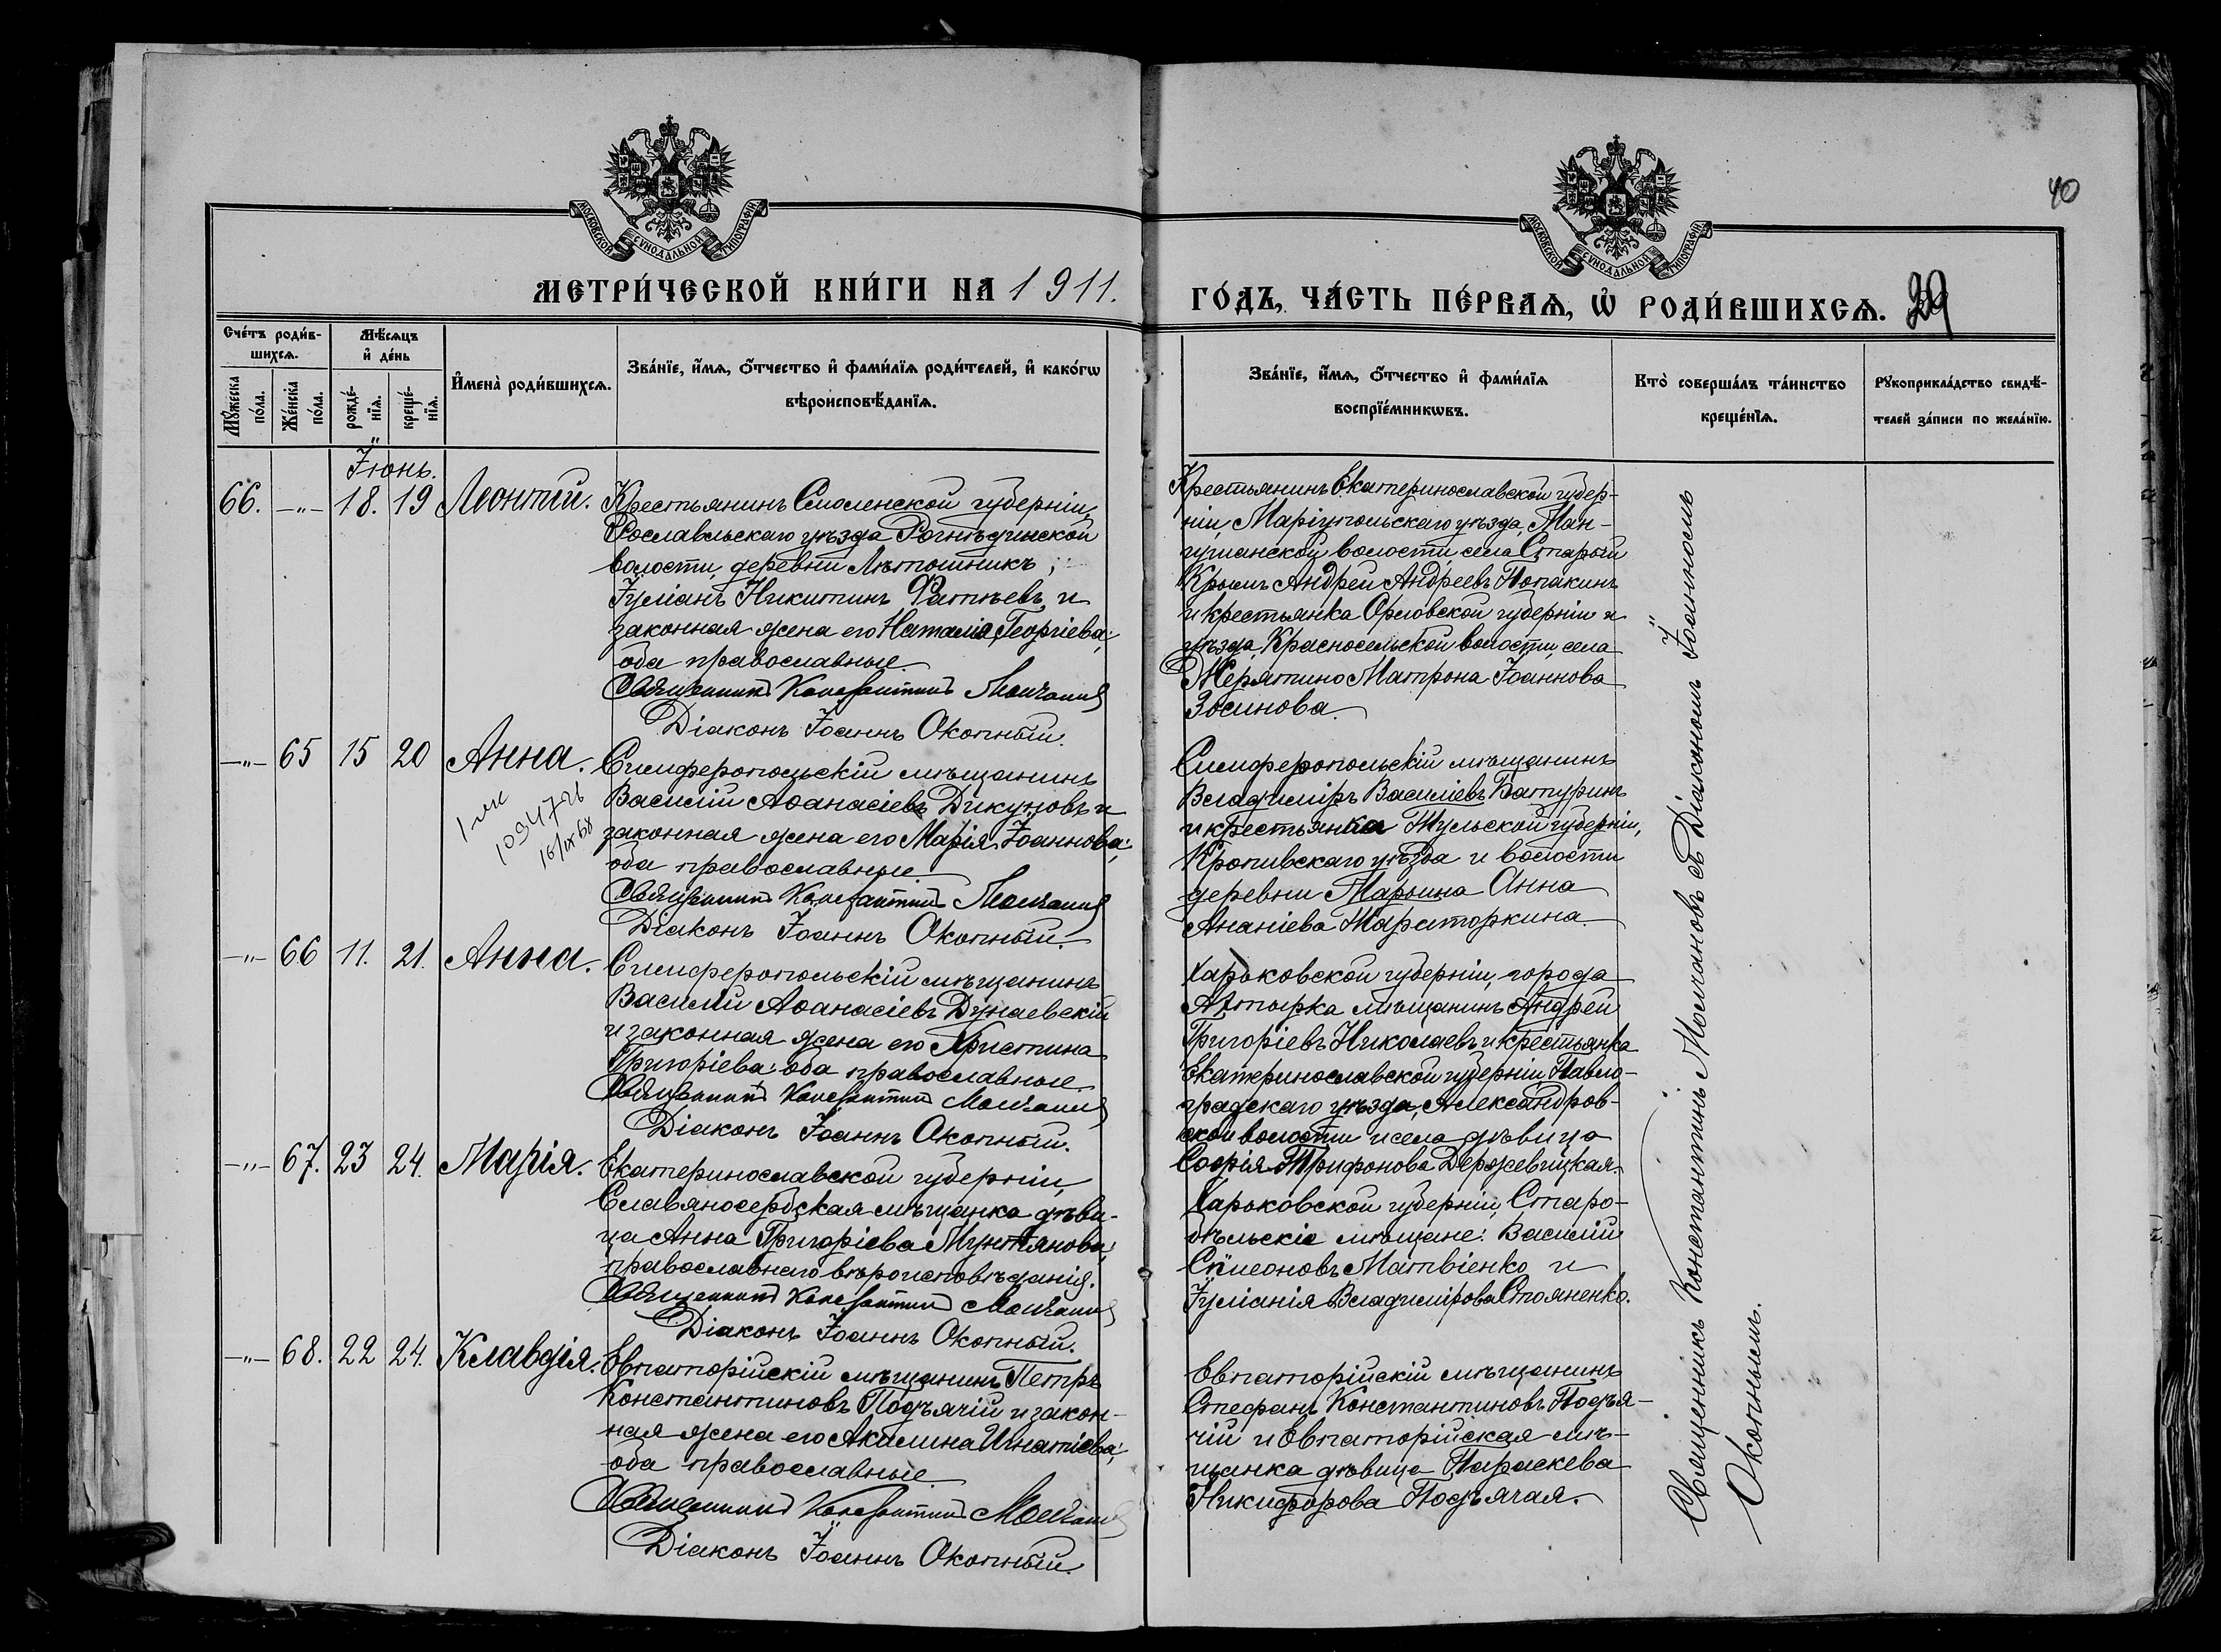 40
МОСКОВСКОЙ СѴНОДАЛЬНОЙ ТИПОГРАФІИ
МОСКОВСКОЙ СѴНОДАЛЬНОЙ ТИПОГРАФІИ
МЕТРИ́ЧЕСКОЙ КНИ́ГИ НА 1911.
ГО́ДЪ, ЧА́СТЬ ПЕ́РВАѦ, Ѡ҆ РОДИ́ВШИХСѦ. 39
Сче́тъ роди́в-
шихсѧ.
Мѣ́сѧцъ
и҆ де́нь
И҆мена̀ роди́вшихсѧ.
Зва́нїе, и҆́мѧ, ѻ҆́тчество и҆ фами́лїѧ роди́телей, и҆ како́гѡ
вѣроисповѣ́данїѧ.
Мꙋ́жеска
по́ла.
Же́нска
по́ла.
рожде́-
нїѧ.
креще́-
нїѧ.
Зва́нїе, и҆́мѧ, ѻ҆́тчество и҆ фами́лїѧ
воспрїе́мникѡвъ.
Кто̀ соверша́лъ та́инство
креще́нїѧ.
Рꙋкоприкла́дство свидѣ́-
телей за́писи по жела́нїю.
Іюнь.
66. -„- 18. 19 Леонтій. Крестьянинъ Смоленской губерніи,
Рославльскаго уѣзда Рогнѣдинской
волости, деревни Лѣтошникъ,
Іуліанъ Никитинъ Фатѣевъ и
законная жена его Наталія Георгіева;
оба православные.
Священникъ Константинъ Молчановъ
Діаконъ Іоаннъ Окопный.
Крестьянинъ Екатеринославской губер-
ніи, Маріупольскаго уѣзда, Ман-
гушанской волости села Старый
Крымъ Андрей Андреевъ Попакинъ
и крестьянка Орловской губерніи и
уѣзда, Красносельской волости, села
Жерятино Матрона Іоаннова
Зосинова.
-„- 65 15 20 Анна. Симферопольскій мѣщанинъ
Василій Аѳанасіевъ Дикуновъ и
законная жена его Марія Іоаннова;
оба православные
Священникъ Константинъ Молчановъ
Діаконъ Іоаннъ Окопный.
16/IX 68
Симферопольскій мѣщанинъ
Владиміръ Василіевъ Батуринъ
и крестьянка Тульской губерніи,
Кропивскаго уѣзда и волости
деревни Марьина Анна
Ананіева Тараторкина.
-„- 66 11. 21. Анна. Симферопольскій мѣщанинъ
Василій Аѳанасіевъ Дунаевскій
и законная жена его Христина
Григоріева: оба православные.
Священникъ Константинъ Молчановъ
Діаконъ Іоаннъ Окопный.
Харьковской губерніи, города
Ахтырка мѣщанинъ Андрей
Григоріевъ Николаевъ и крестьянка
Екатеринославской губерніи Павло-
градскаго уѣзда, Александров-
ской волости и села дѣвица
Софія Трифонова Держевицкая.
-„- 67. 23 24. Марія. Екатеринославской губерніи,
Славяносербская мѣщанка дѣви-
ца Анна Григоріева Мунтянова;
православнаго вѣроисповѣданія.
Священникъ Константинъ Молчановъ
Діаконъ Іоаннъ Окопный.
Харьковской губерніи, Старо-
бѣльскіе мѣщане: Василій
Симеоновъ Матвіенко и
Іуліанія Владимірова Стояненко.
-„- 68. 22 24. Клавдія. Евпаторійскій мѣщанинъ Петръ
Константиновъ Подъячій и закон-
ная жена его Акилина Игнатіева;
оба православные
Священникъ Константинъ Молчановъ
Діаконъ Іоаннъ Окопный.
Евпаторійскій мѣщанинъ
Стефанъ Константиновъ Подъя-
чій и Евпаторійская мѣ-
щанка дѣвица Параскева
Никифорова Подъячая.
Священникъ Константинъ Молчановъ съ Діакономъ Іоанномъ
Окопнымъ.